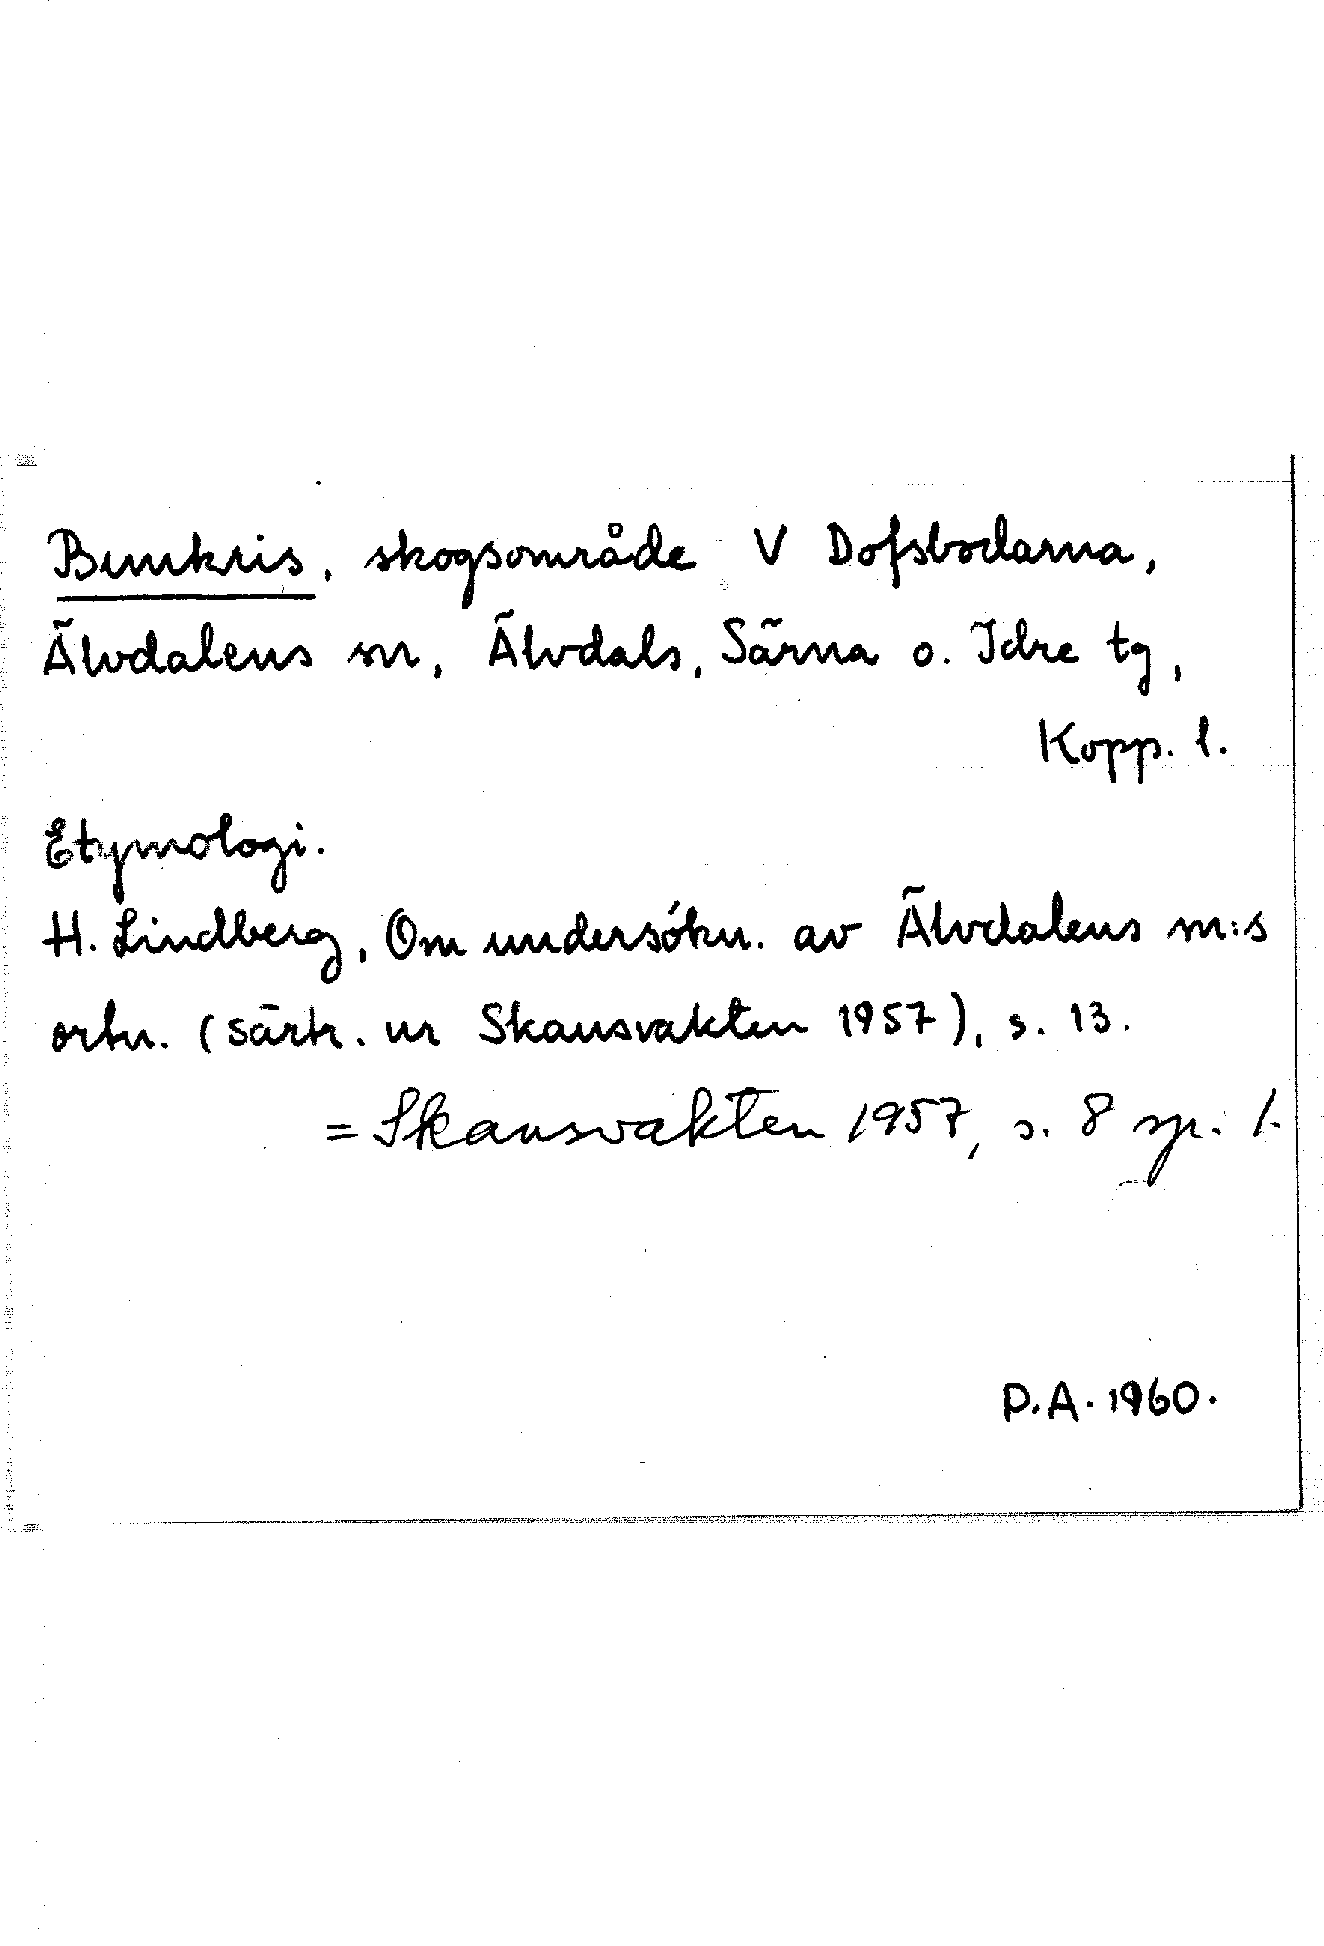 Bunkris, skogsområde V Dofsbodarna,
Älvdalens sn, Älvdals, Särna o. Idre tg,
Kopp. l.
Etymologi.
H. Lindberg, Om undersökn. av Älvdalens sn:s
ortn. (särtr. ur Skansvakten 1957), s. 13.
= Skansvakten 1957, s. 8 sp. 1.
P.A. 1960.